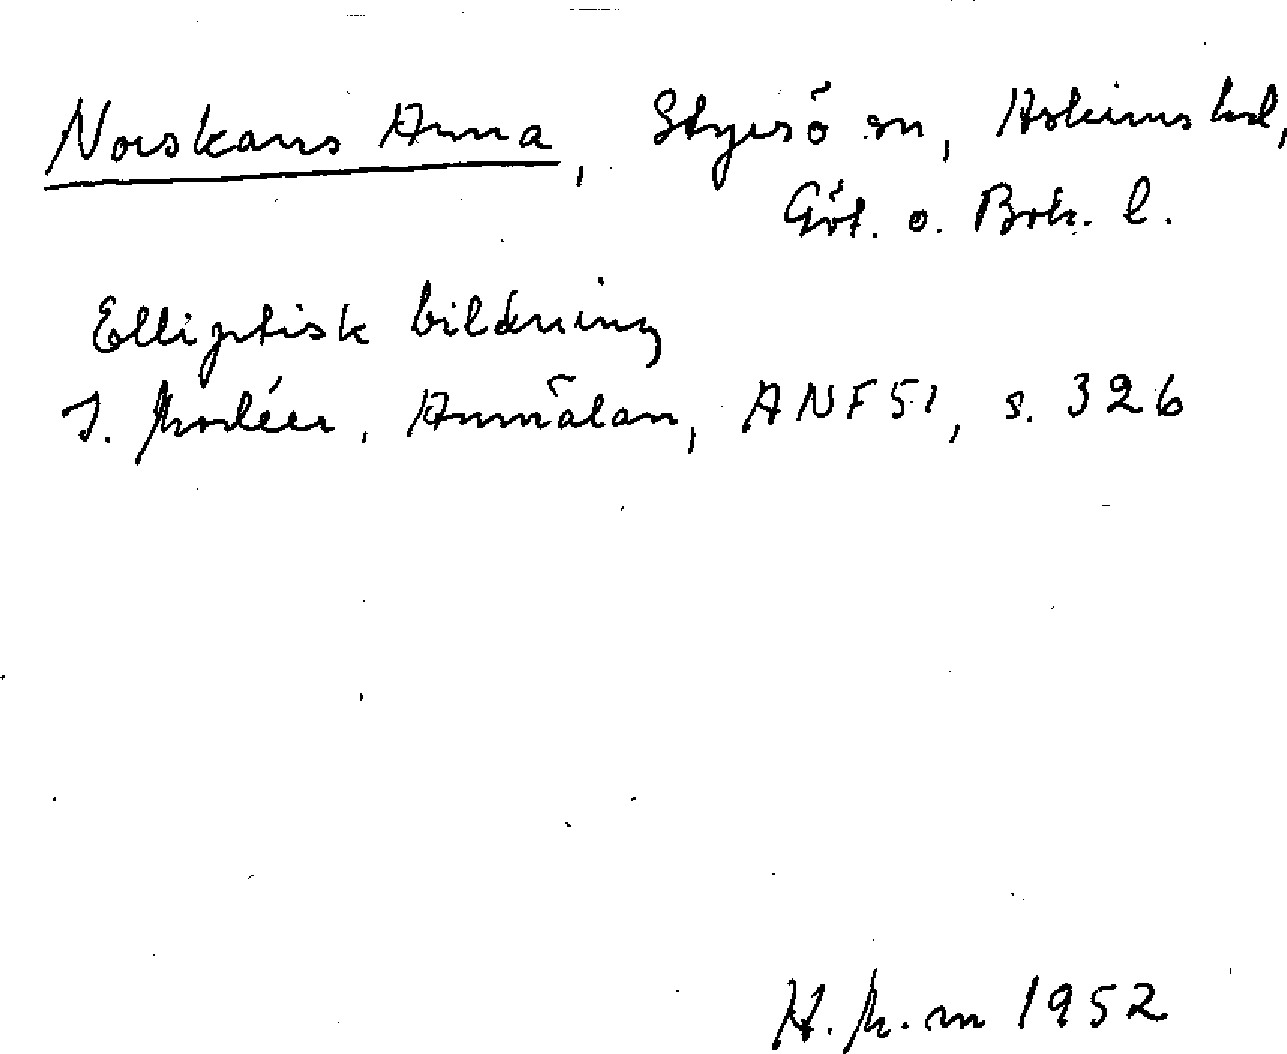 Norskans Anna, Styrsö sn, Askims hd,
Göt. o. Boh. l.
Elliptisk bildning
I. Modéer, Anmälan, ANF 51, s. 326
H. M-m 1952